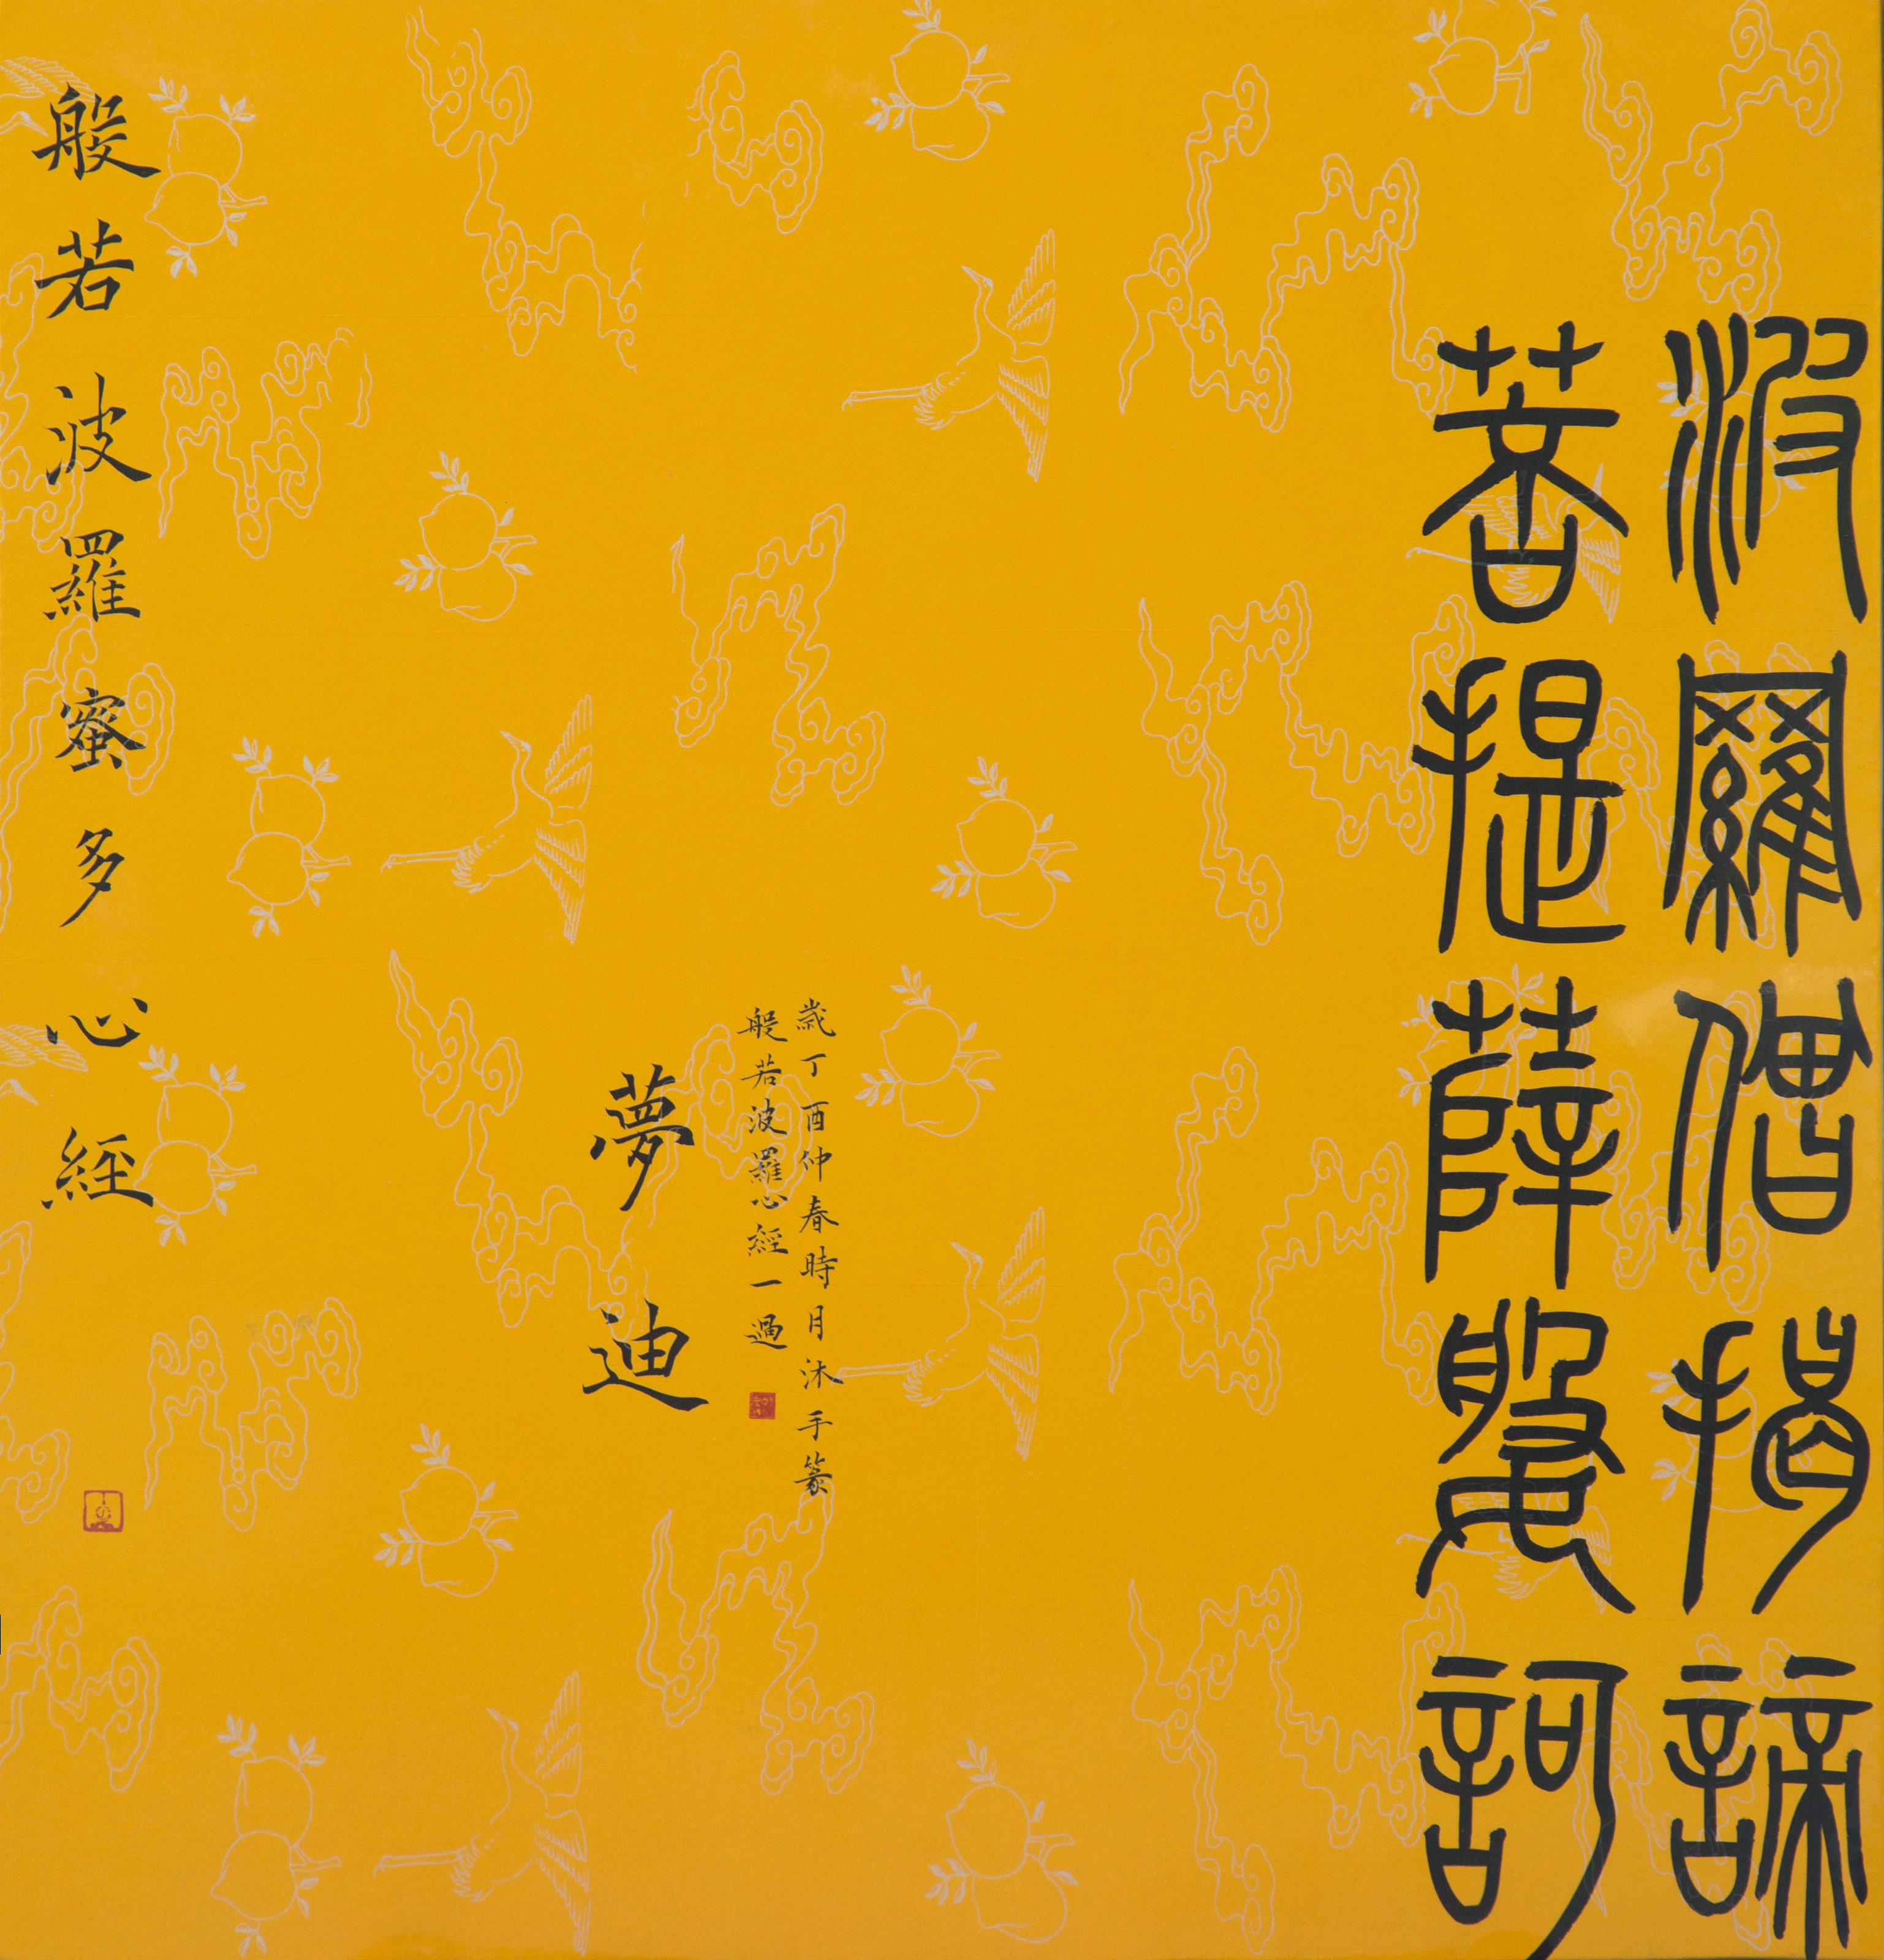 波羅僧揭諦
菩提薛媻訶
歲丁酉仲春時月沐手篆
般若波羅心經一過
夢迪
般若波羅蜜多心經